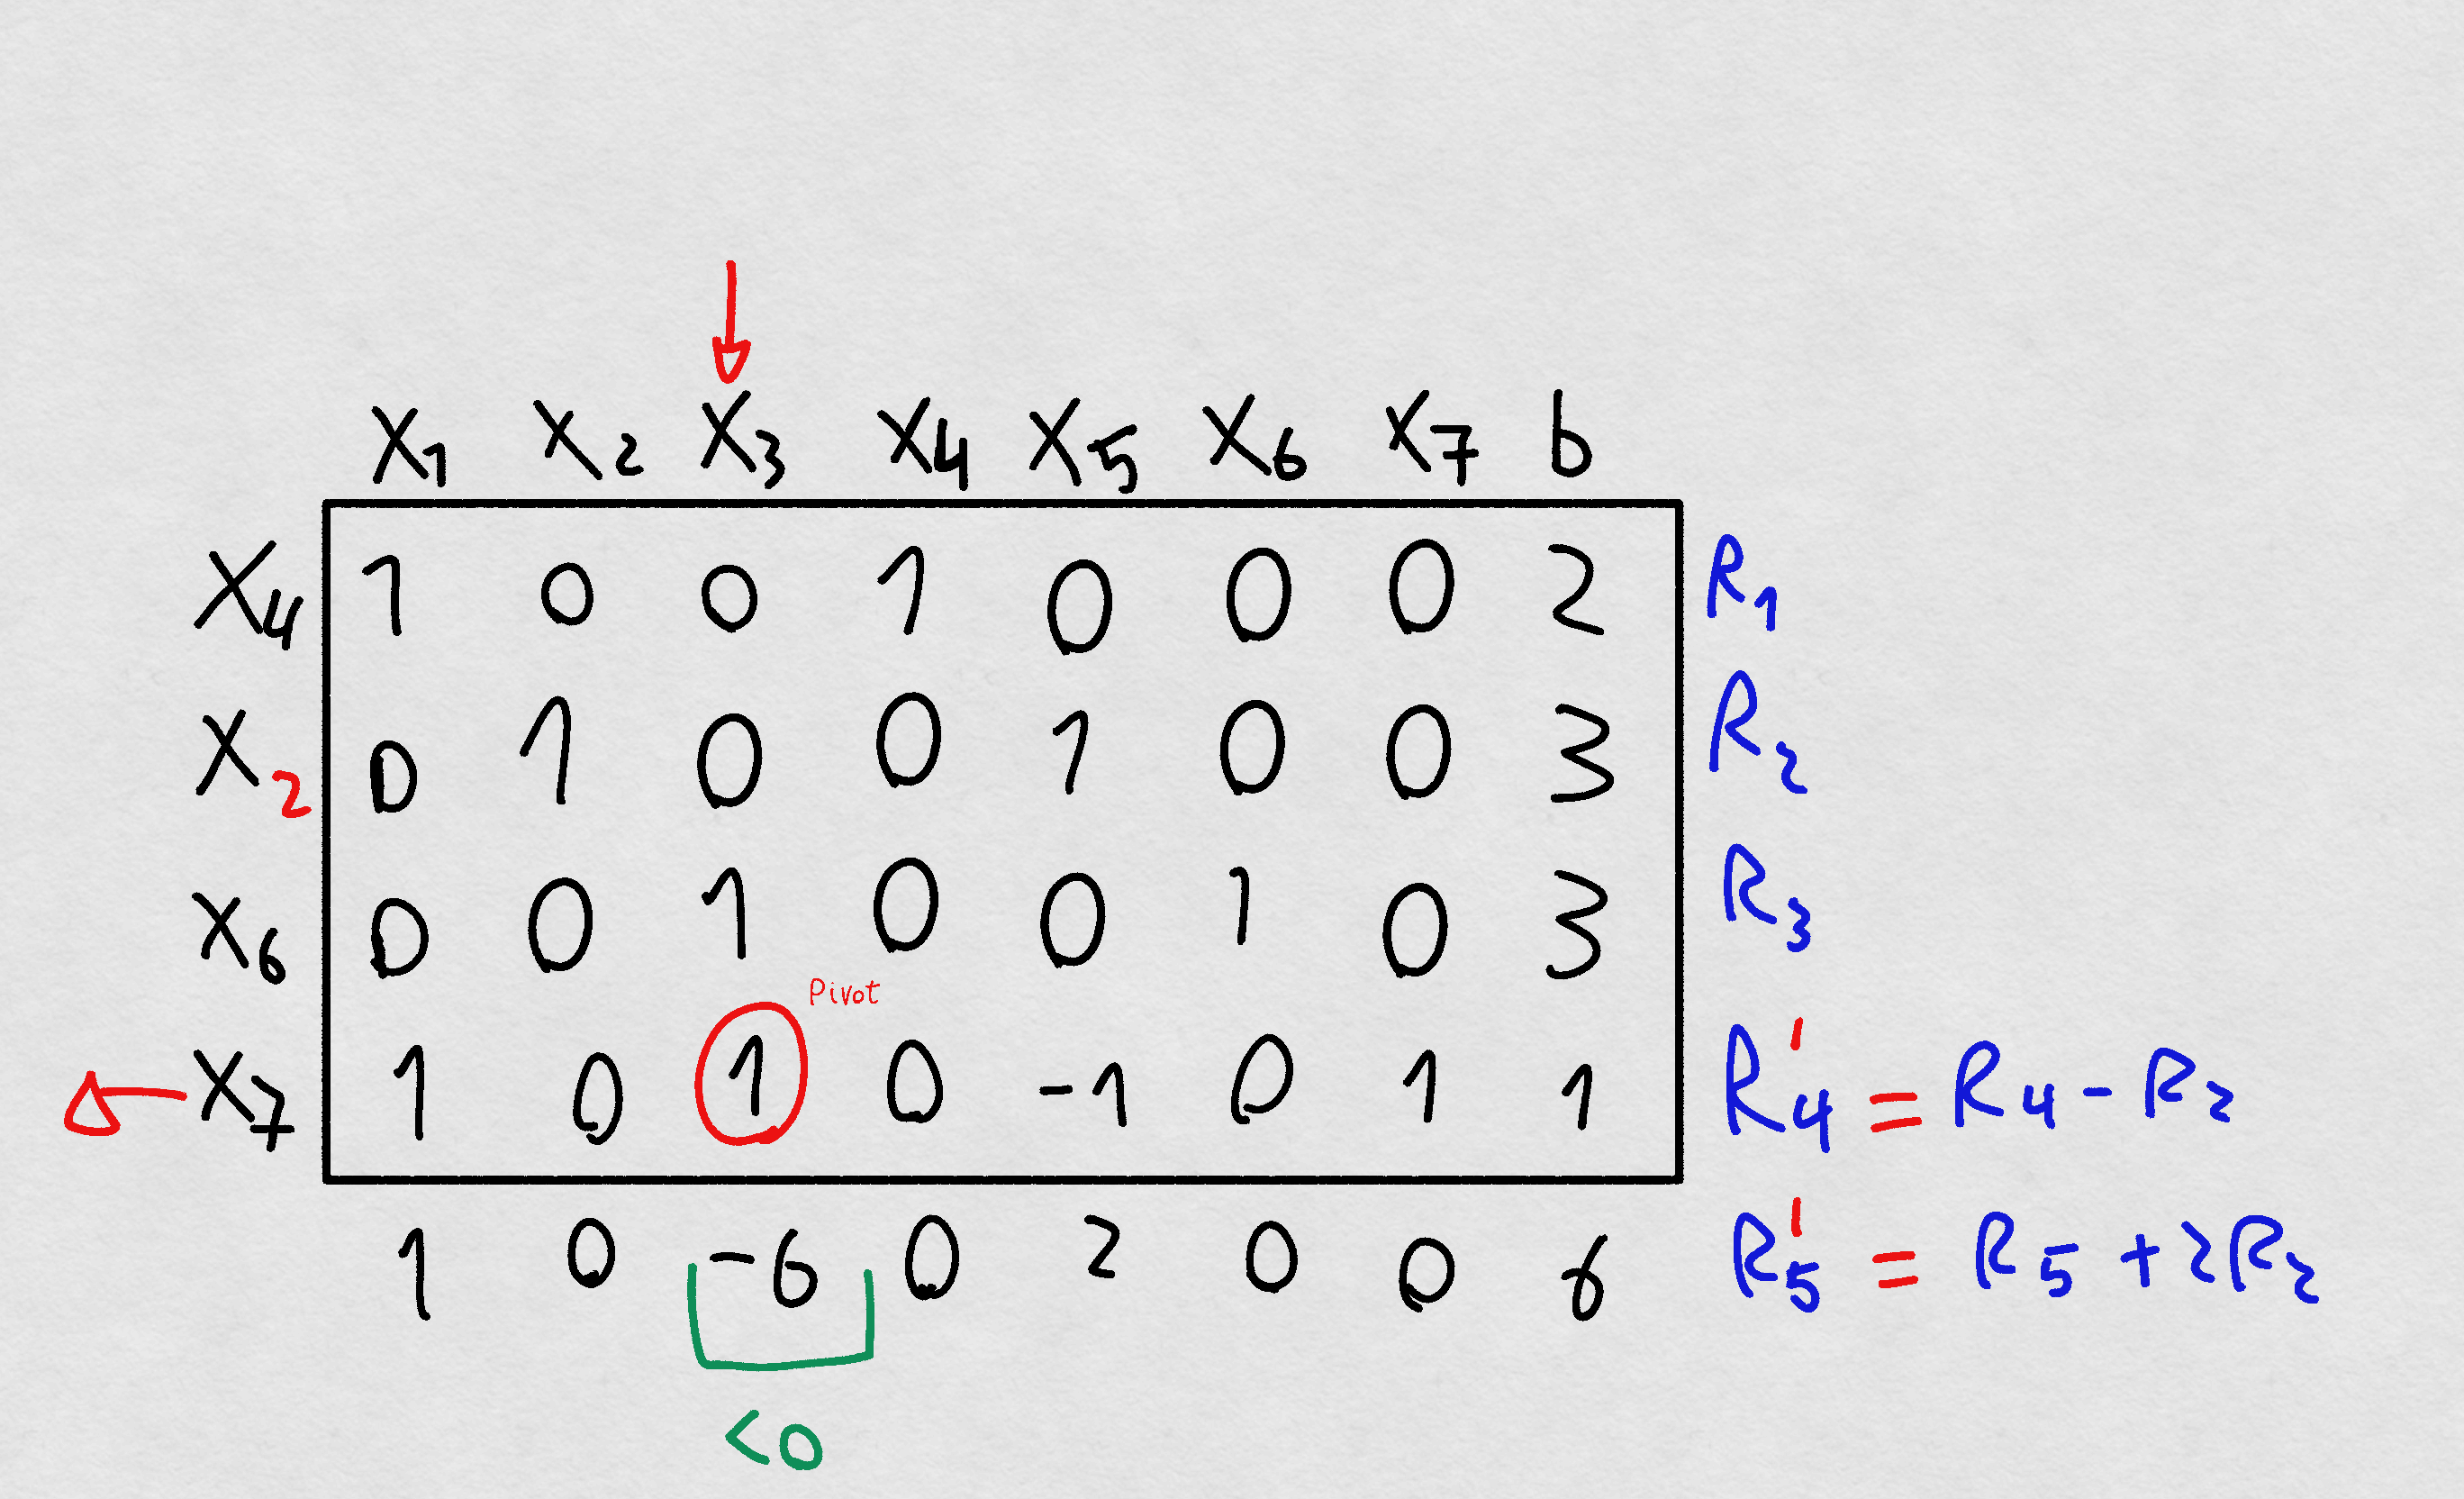 X1 X2 X3 X4 X5 X6 X7 b
X4 1 0 0 1 0 0 0 2 R1
X2 0 1 0 0 1 0 0 3 R2
X6 0 0 1 0 0 1 0 3 R3
Pivot
X7 1 0 1 0 -1 0 1 1 R4' = R4 - R2
1 0 -6 0 2 0 0 6 R5' = R5 + 2R2
<0